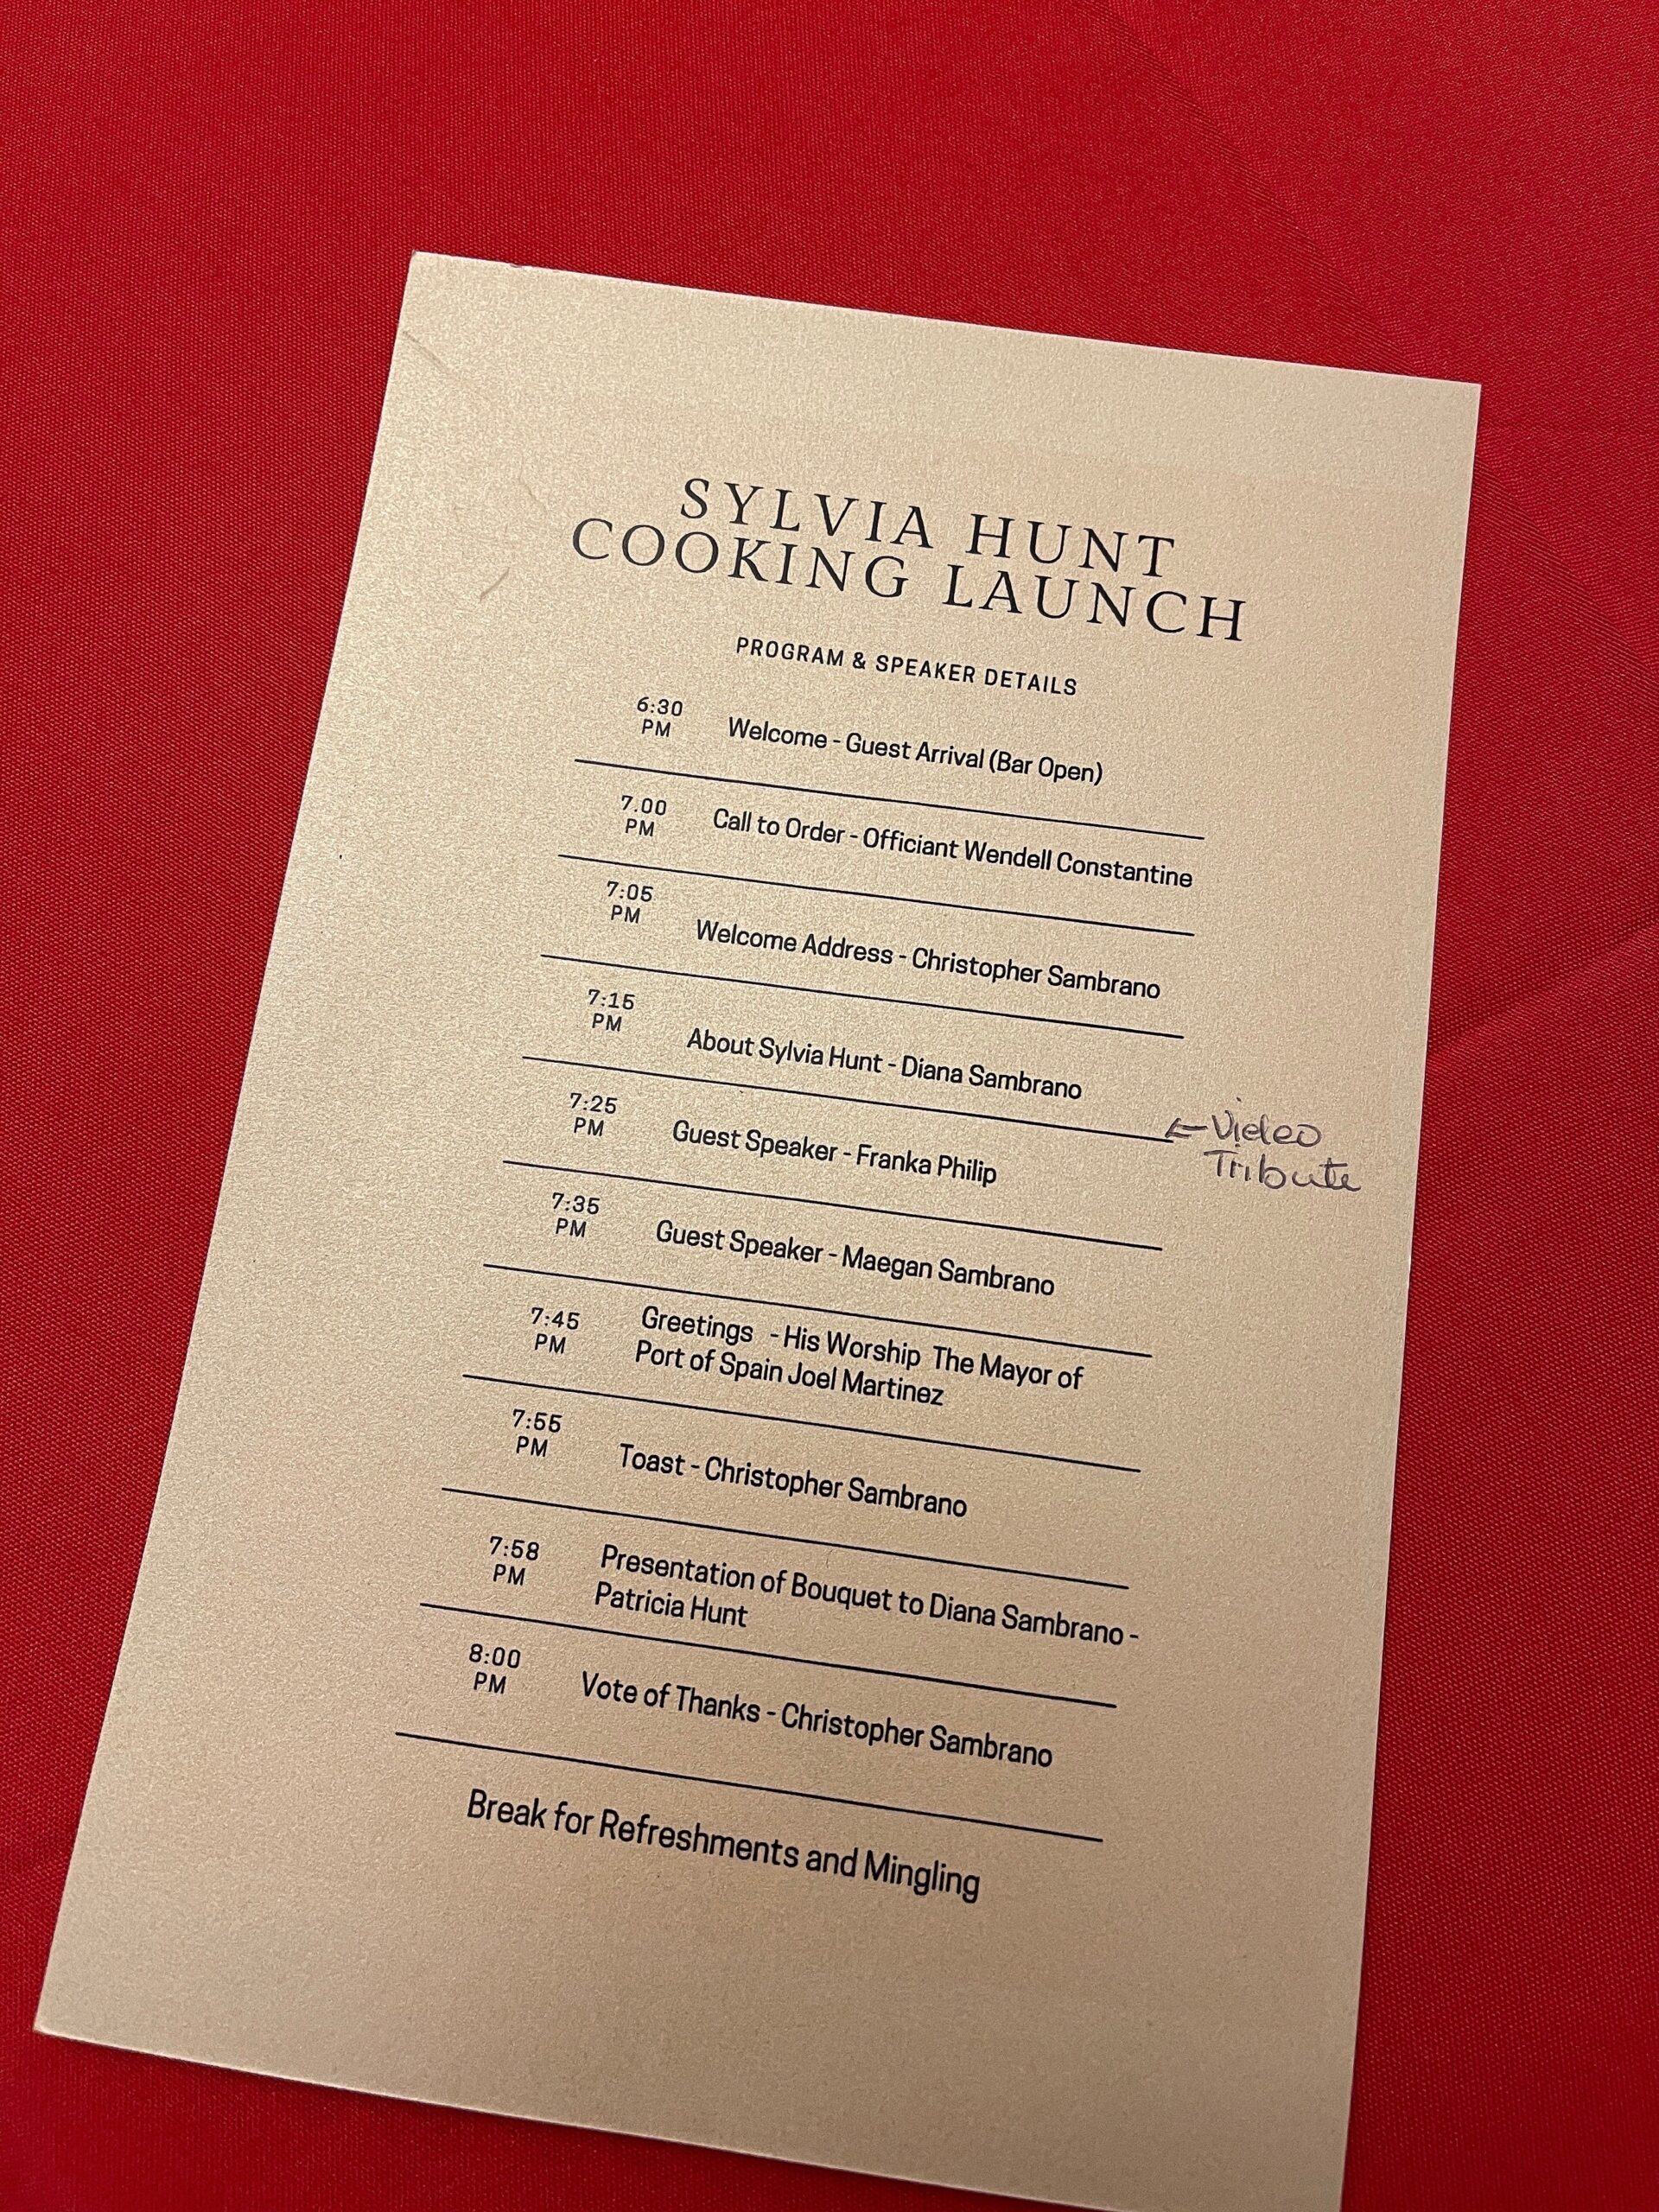 SYLVIA HUNT
COOKING LAUNCH
PROGRAM & SPEAKER DETAILS
6:30
PM
Welcome - Guest Arrival (Bar Open)
7.00
PM
Call to Order - Officiant Wendell Constantine
7:05
PM
Welcome Address - Christopher Sambrano
7:15
PM
About Sylvia Hunt - Diana Sambrano
← Video
Tribute
7:25
PM
Guest Speaker - Franka Philip
7:35
PM
Guest Speaker - Maegan Sambrano
7:45
PM
Greetings - His Worship The Mayor of
Port of Spain Joel Martinez
7:55
PM
Toast - Christopher Sambrano
7:58
PM
Presentation of Bouquet to Diana Sambrano -
Patricia Hunt
8:00
PM
Vote of Thanks - Christopher Sambrano
Break for Refreshments and Mingling